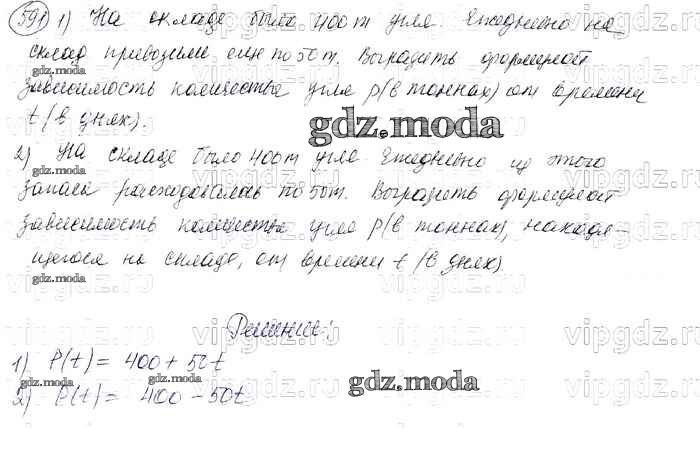 591 1) На складе было 400 т угля. Ежедневно на
склад привозили еще по 50 т. Выразить формулой
gdz.moda
зависимость количества угля p (в тоннах) от времени
t (в днях).
gdz.moda
2) На складе было 400 т угля. Ежедневно из этого
gdz.moda
запаса расходовалось по 50 т. Выразить формулой
зависимость количества угля p (в тоннах), находя-
щегося на складе, от времени t (в днях).
gdz.moda
Решение:
1) P(t) = 400 + 50t
gdz.moda gdz.moda gdz.moda
2) P(t) = 400 - 50t
vipgdz.ru